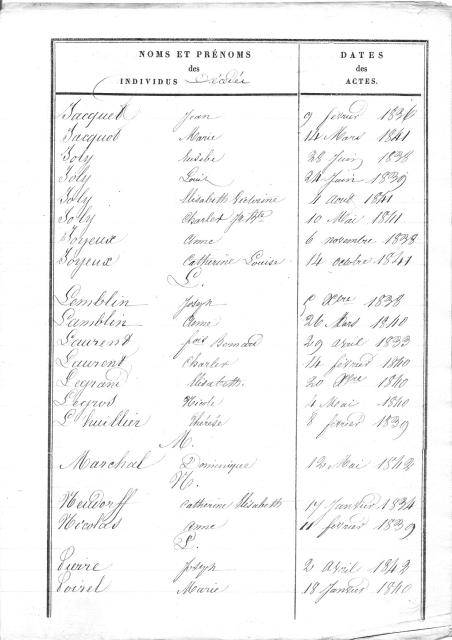 NOMS ET PRÉNOMS
des
INDIVIDUS Décédés
DATES
des
ACTES.
Jacquet Jean 9 février 1836
Jacquot Marie 14 Mars 1841
Joly Eusèbe 28 Juin 1838
Joly Louis 24 Juin 1839
Joly Elisabeth 4 Août 1841
Joly Charles Je Bte 10 Mai 1841
Joyeux Anne 6 novembre 1838
Joyeux Catherine Louise 14 octobre 1841
L.
Lemblin Joseph 5 Xbre 1838
Lamblin Anne 26 Mars 1840
Laurent fois 29 avril 1833
Laurent Charles 14 février 1840
Legrand Elisabeth 20 Xbre 1840
Legros Nicole 4 Mai 1840
L'huillier Thérèse 8 février 1839
M.
Marchal Dominique 12 Mai 1842
N.
Neudorff Catherine Elisabeth 17 Janvier 1834
Nicolas Anne 11 février 1839
P.
Pierre Joseph 2 Avril 1842
Poirel Marie 18 Janvier 1840